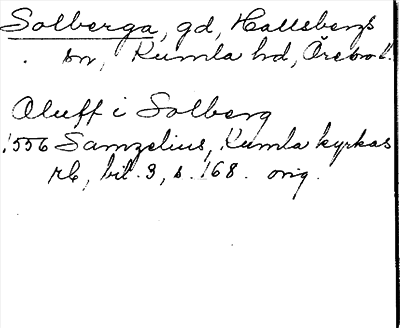 Solberga, gd, Hallsbergs
sn, Kumla hd, Örebro l.
Oluff i Solberg
1556 Samzelius, Kumla kyrkas
rb, bil. 3, s. 168. orig.